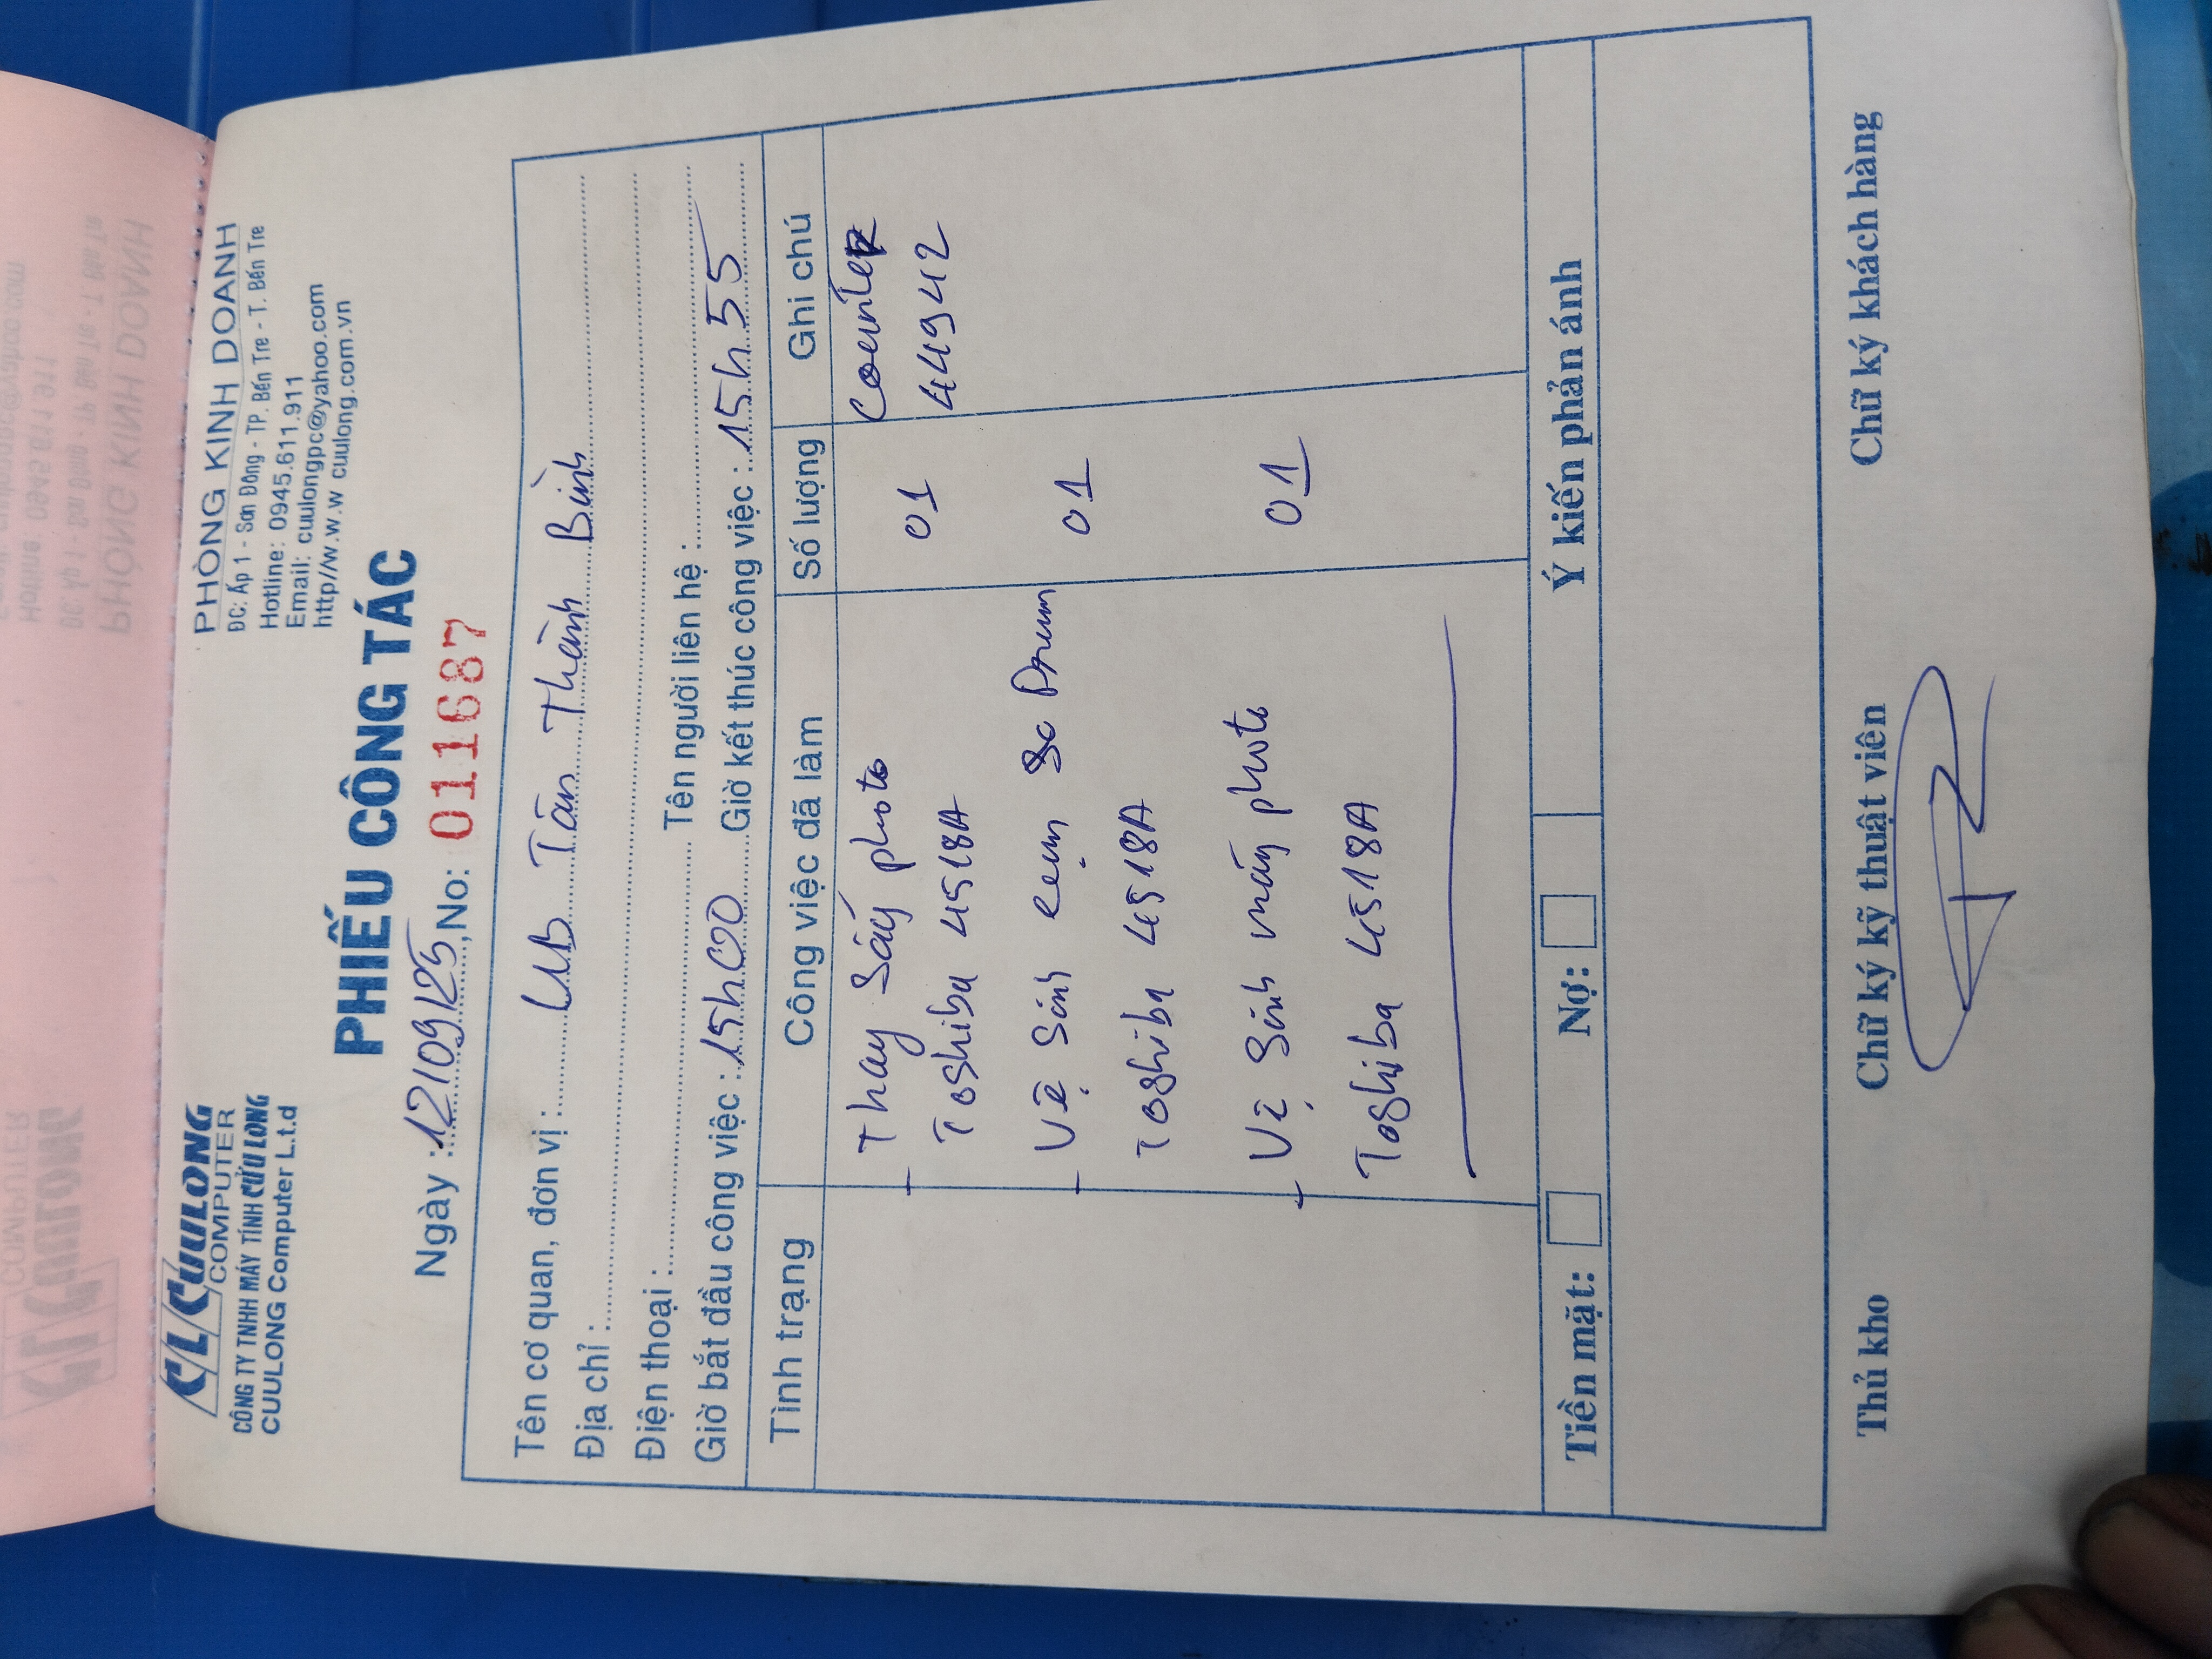 CL CUULONG
COMPUTER
CÔNG TY TNHH MÁY TÍNH CỬU LONG
CUULONG Computer L.t.d
PHÒNG KINH DOANH
ĐC: Ấp 1 - Sơn Đông - TP. Bến Tre - T. Bến Tre
Hotline: 0945.611.911
Email: cuulongpc@yahoo.com
http//w.w.w cuulong.com.vn
PHIẾU CÔNG TÁC
Ngày : 12/09/25, No: 011687
Tên cơ quan, đơn vị : UB Tân Thành Bình
Địa chỉ :
Điện thoại : Tên người liên hệ :
Giờ bắt đầu công việc : 15h00 Giờ kết thúc công việc : 15h55
Tình trạng Công việc đã làm Số lượng Ghi chú
+ Thay Sấy photo 01 Counter
Toshiba 4518A 44942
+ Vệ Sinh cụm Sc Drum 01
Toshiba 4518A
+ Vệ Sinh máy photo 01
Toshiba 4518A
Tiền mặt: Nợ: Ý kiến phản ánh
Thủ kho Chữ ký kỹ thuật viên Chữ ký khách hàng